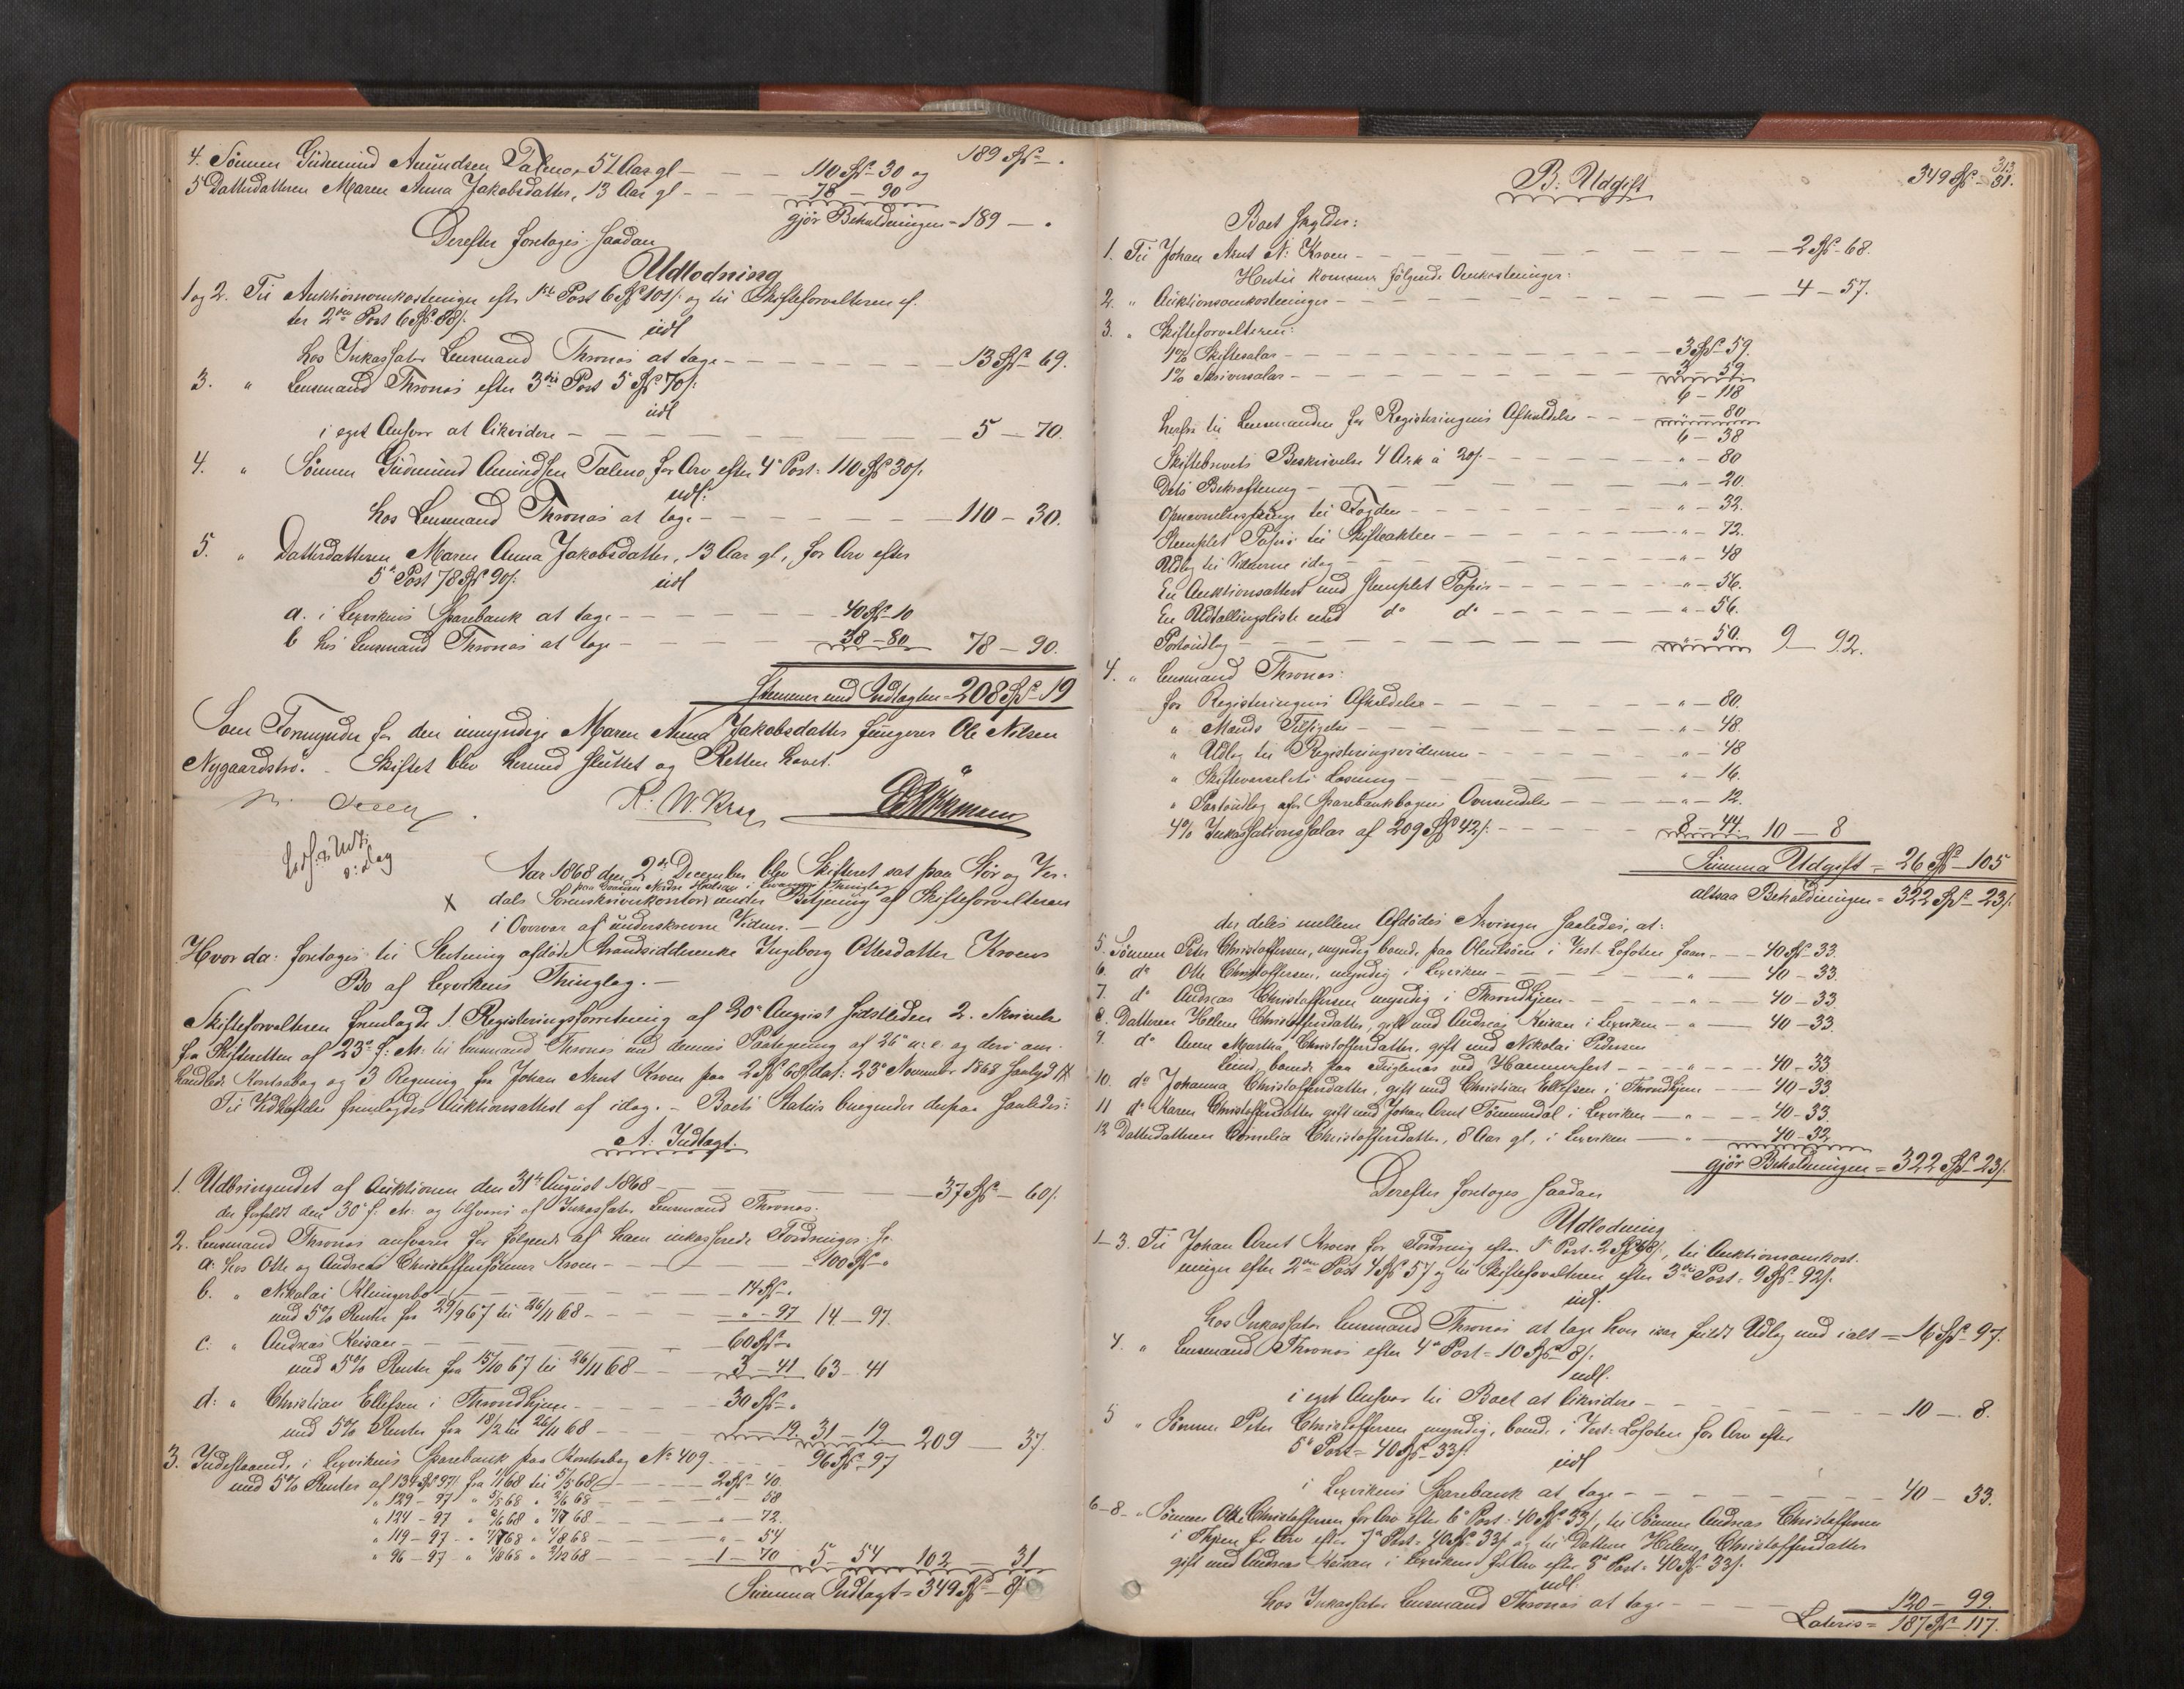 189 Spd - .
4. Sønnen Gudmund Amundsen Talmo, 51 Aar gl - - - 110 Spd - 30 og
5 Datterdatteren Maren Anna Jakobsdatter, 13 Aar gl - - 78 - 90
gjør Beholdningen = 189 - .
Derefter foretoges saadan
Udlodning
1 og 2. Til Auktionsomkostninger efter 1ste Post 6 Spd 101 s. og til Skifteforvalteren ef-
ter 2den Post 6 Spd 88 s.
udl
hos Inkassator Lensmand Thronæs at tage - - - 13 Spd - 69.
3. " Lensmand Thronæs efter 3die Post 5 Spd 70 s.
udl
i eget Ansvar at likvidere - - - 5 - 70.
4. " Sønnen Gudmund Amundsen Talmo, for Arv efter 4de Post = 110 Spd 30 s.
udl:
hos Lensmand Thronæs at tage - - - 110 - 30.
5. " Datterdatteren Maren Anna Jakobsdatter, 13 Aar gl, for Arv efter
5te Post 78 Spd 90 s.
udl
a. i Lexvikens Sparebank at tage - - - 40 Spd - 10
b hos Lensmand Thronæs at tage - - - 38 - 80 78 - 90.
Stemmer med Indtægten = 208 Spd - 19
Som Formynder for den umyndige Maren Anna Jakobsdatter fungerer Ole Nilsen
Nygaardstrø. - Skiftet blev hermed sluttet og Retten hævet.
R. W. Krag
Aar 1868 den 2den December blev Skifteret sat paa Stør og Ver-
paa Gaarden Nordre i Thinglag
x dals Sorenskriverkontor under Betjening af Skifteforvalteren
i Overvær af underskrevne Vidner. -
Hvor da: foretoges til Slutning afdøde Strandsidderenke Ingeborg Ottesdatter Kroens
Bo af Lexvikens Thinglag. -
Skifteforvalteren fremlagde 1. Registreringsforretning af 30te August sidstleden 2. Skrivelse
fra Skifteretten af 23de f: M: til Lensmand Thronæs med dennes Paategning af 26de s: M. og deri om-
handlede Kontrabog og 3 Regning fra Johan Arnt Kroen paa 2 Spd 68 s dat: 23de November 1868
Til Vedhæftelse fremlagdes Auktionsattest af idag. - Boets Status beregnedes derpaa saaledes:
A: Indtægt.
1. Udbringendet af Auktionen den 31te August 1868 - - - 37 Spd - 60 s.
der forfaldt den 30te f: M: og tilsvares af Inkassator Lensmand Thronæs.
2. Lensmand Thronæs ansvarer for følgende af ham inkasserede Fordringer:
a. hos Otte og Andreas Christoffersønner Kroen - - - 100 Spd - "
b. " Nikolai Klingerbo - - - 14 Spd - "
med 5% Renter fra 29/9 67 til 26/11 68 - - - " - 97 14 - 97.
c. " Andreas Keisan - - - 60 Spd - "
med 5% Renter fra 15/10 67 til 26/11 68 - - - 3 - 41 63 - 41
d: " Christian Ellefsen i Throndhjem - - - 30 Spd - "
med 5% Renter fra 18/2 til 26/11 68 - - - 1 - 19 31 - 19 209 - 37.
3. Indestaaende i Lexvikens Sparebank paa Kontrabog No 409 - - - 96 Spd - 97
med 5% Renter af 134 Spd 97 s. fra 1/1 68 til 5/5 68 - - - 2 Spd - 40.
" 129 - 97 " 5/5 68 " 2/6 68 - - - " - 58
" 124 - 97 " 2/6 68 " 7/7 68 - - - " - 72.
" 119 - 97 " 7/7 68 " 4/8 68 - - - " - 54
" 96 - 97 " 4/8 68 " 2/12 68 - - - 1 - 70 5 - 54 102 - 31
Summa Indtægt = 349 Spd - 8 s
313
349 Spd - 31.
B: Udgift
Boet skylder:
1. Til Johan Arnt N: Kroen - - - 2 Spd - 68.
Hertil kommer følgende Omkostninger:
2. " Auktionsomkostninger - - - 4 - 57.
3. " Skifteforvalteren:
1% Skiftesalær - - - 3 Spd - 59.
1% Skriversalær - - - 3 - 59.
6 - 118
herfra til Lensmanden for Registreringens Afholdelse - - - " - 80
6 - 38
Skiftebrevets Beskrivelse 4 Ark à 20 s. - - - " - 80
Dets Bekræftning - - - " - 20.
til Fogden - - - " - 32.
Stemplet Papir til Skifteakten - - - " - 72.
Udlæg til Vidnerne idag - - - " - 48
En Auktionsattest med stemplet Papir - - - " - 56.
En Udtallingsliste med do do - - - " - 56.
Portoudlæg - - - " - 50. 9 - 92.
4. " Lensmand Thronæs:
for Registreringens Afholdelse - - - " - 80.
" Mænds Tilsigelse - - - " - 48.
" Udlæg til Registreringsvidnerne - - - " - 48
" Skiftevarselets Læsning - - - " - 16.
" Portoudlæg for Sparebankbogens Oversendelse - - - " - 12.
4% Inkassationssalær af 209 Spd 42 s. - - - 8 - 44. 10 - 8
Summa Udgift = 26 Spd - 105
altsaa Beholdningen = 322 Spd - 23 s.
der deles mellem Afdødes Arvinger saaledes, at:
5. Sønnen Peter Christoffersen, myndig, boende paa i Vest-Lofoten faar - - 40 Spd - 33.
6. do Otte Christoffersen, myndig i Lexviken - - - " - 40 - 33.
7. do Andreas Christoffersen myndig i Throndhjem - - - " - 40 - 33
8. Datteren Helene Christoffersdatter, gift med Andreas Keisan i Lexviken - " - 40 - 33.
9. do Anne Martha Christoffersdatter, gift med Nikolai Pedersen
Lund, boende paa Fuglenæs ved Hammerfest - - - " - 40 - 33.
10. do Johanna Christoffersdatter, gift med Christian Ellefsen i Throndhjem - - - 40 - 33.
11 do Karen Christoffersdatter gift med Johan Arnt Tømmerdal i Lexviken - " - - 40 - 33.
12 Datterdatteren Cornelia Christoffersdatter, 8 Aar gl, i Lexviken - " - 40 - 32
gjør Beholdningen = 322 Spd - 23 s.
Derefter foretoges saadan
Udlodning
1-3. Til Johan Arnt Kroen for Fordring efter 1ste Post = 2 Spd 68 s., til Auktionsomkost-
ninger efter 2den Post 4 Spd 57 og til Skifteforvalteren efter 3die Post = 9 Spd - 92 s.
udl.
hos Inkassator Lensmand Thronæs at tage hver især fuldt Udlæg med ialt = 16 Spd - 97.
4. " Lensmand Thronæs efter 4de Post = 10 Spd - 8 s.
udl.
i eget Ansvar til Boet at likvidere - - - 10 - 8.
5 " Sønnen Peter Christoffersen myndig, boende i Vest-Lofoten for Arv efter
5te Post = 40 Spd - 33 s.
udl
i Lexvikens Sparebank at tage - - - 40 - 33.
6-8 - " Sønnen Otte Christoffersen for Arv efter 6te Post = 40 Spd - 33 s, til Sønnen Andreas Christoffersen
i Thjem for Arv efter 7de Post = 40 Spd - 33 s og til Datteren Helene Christoffersdatter
gift med Andreas Keisan i Lexviken for Arv efter 8de Post = 40 Spd - 33 s.
udl.
hos Inkassator Lensmand Thronæs at tage - - - 120 - 99.
Lateris = 187 Spd - 117.